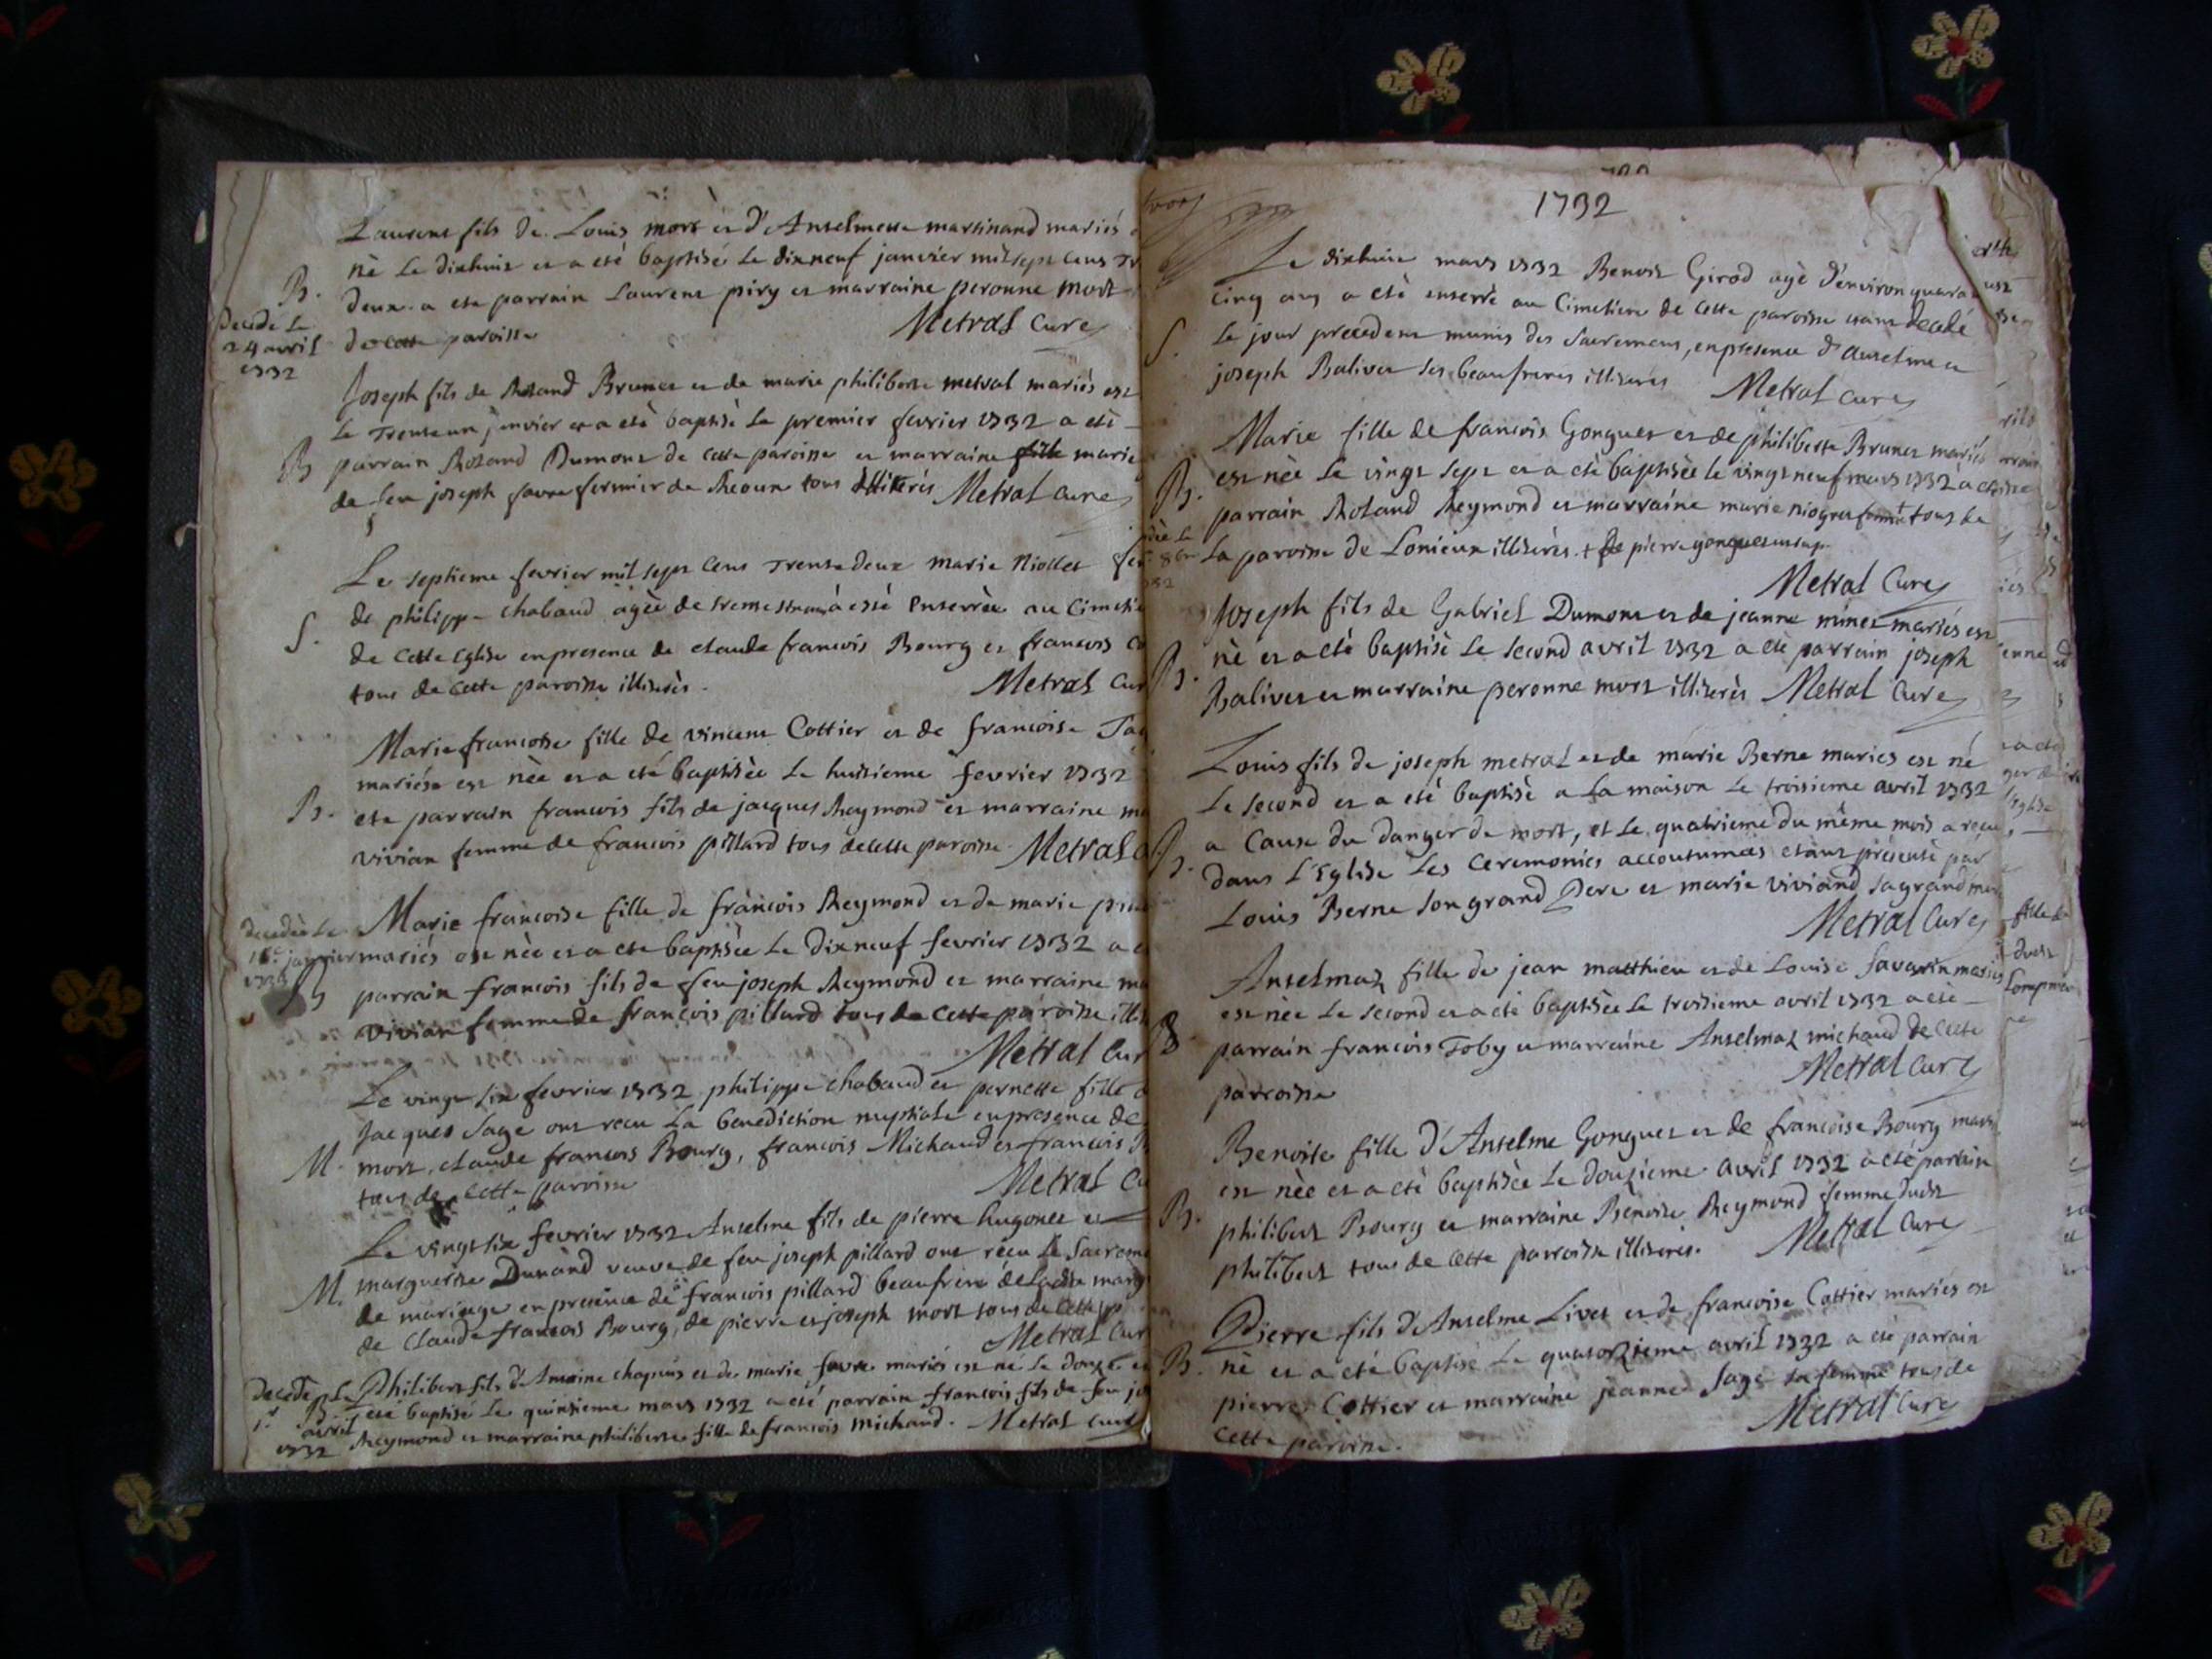 Laurent fils de Louis mort et d'Anselmette martinand mariés
né Le dixhuit et a été baptisé Le dixneuf janvier mil sept cens
B.
deux a été parrain Laurent piry et marraine peronne mort
decedé Le
24 avril
1732
de cette paroisse Metral Curé
Joseph fils de Roland Brunet et de marie philiberte metral mariés est
Le Trenteun janvier et a eté baptisé Le premier fevrier 1732 a eté
B
parrain Roland Dumont de cette paroisse et marraine marie
de feu joseph favre fermier de tous illiterés Metral Curé
Le septieme fevrier mil sept cens Trente deux marie Niollet
S.
de philippe chabaud agèe de a esté Enterrée au Cimetie
de cette Eglise en presence de claude francois Bourg et francois
tous de cette paroisse illiterés. Metral Cur
Marie francoise fille de vincent Cottier et de francoise
mariés est nèe et a eté baptisèe Le huitieme fevrier 1732
B.
eté parrain francois fils de jacques Reymond et marraine
vivian femme de francois pillard tous de cette paroisse Metral
decedèe Le
janvier
Marie francoise fille de francois Reymond et de marie
mariés est nèe et a eté baptisèe Le Dixneuf fevrier 1732 a
B
parrain francois fils de feu joseph Reymond et marraine
vivian femme de francois pillard tous de cette paroisse
Metral Cur
Le vingt six fevrier 1732 philippe chabaud et pernette fille
Jacques Sage ont recu La benediction nuptiale en presence de
M.
mort, claude francois Bourg, francois Michaud et francois
tous de cette paroisse Metral Cu
Le vingt six fevrier 1732 Anselme fils de pierre hugonet et
M.
marguerite Dunand veuve de feu joseph pillard ont recu Le Sacreme
de mariage en presence de francois pillard beaufrere de Ladite marg
de Claude francois Bourg, de pierre et joseph mort tous de cette
Metral Cur
decedé Le
1r avril
1732
B
Philibert fils d'Antoine chapuis et de marie favre mariés est né Le douze et
eté baptisé Le quinzieme mars 1732 a eté parrain francois fils de feu
Reymond et marraine philiberte fille de francois Michaud. Metral Curé
1732
Le dixhuit mars 1732 Benoit Girod agé d'environ
Cinq ans a eté enterré au Cimetiere de cette paroisse etant decedé
S.
Le jour precedent munis des Sacremens, en presence d'Anselme et
joseph Balivet ses beaufreres illiterés Metral Curé
Marie fille de francois Gonguet et de philiberte Brunet mariés
B.
est nèe Le vingt sept et a eté baptisèe Le vingt neuf mars 1732 a
parrain Roland Reymond et marraine marie tous de
La paroisse de Lomieux illiterés. + de pierre gonguet
Metral Curé
Joseph fils de Gabriel Dumont et de jeanne minet mariés est
B.
né et a eté baptisé Le second avril 1732 a eté parrain joseph
Balivet et marraine peronne mort illiterés Metral Curé
Louis fils de joseph metral et de marie Berne mariés est né
Le second et a eté baptisé a La maison Le troisieme avril 1732
B.
a Cause du danger de mort, et Le quatrieme du même mois a recu
dans L'Eglise Les Ceremonies accoutumées etant présenté par
Louis Berne son grand Pere et marie viviand sa grand
Metral Curé
Anselmaz fille de jean matthieu et de Louise Savarin mariés
est nèe Le second et a eté baptisèe Le troisieme avril 1732 a eté
B
parrain francois Toby et marraine Anselmaz michaud de cette
parroisse Metral Curé
Benoite fille d'Anselme Gonguet et de francoise Bourg
est nèe et a eté baptisèe Le douzieme avril 1732 a eté parrain
B.
philibert Bourg et marraine Benoite Reymond femme dudit
philibert tous de cette parroisse illiterés. Metral Curé
Pierre fils d'Anselme Livet et de francoise Cottier mariés est
B.
né et a eté baptisé Le quatorzieme avril 1732 a eté parrain
pierre Cottier et marraine jeanne Sage sa femme tous de
cette paroisse. Metral Curé